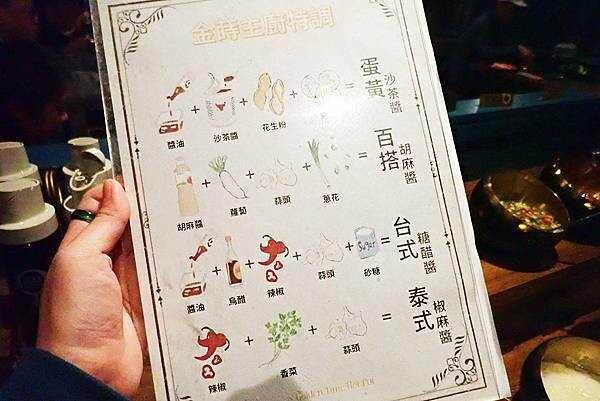 金蒔主廚特調
醬油 + 沙茶醬 + 花生粉 + = 蛋黃沙茶醬
胡麻醬 + 蘿蔔 + 蒜頭 + 蔥花 = 百搭胡麻醬
醬油 + 烏醋 + 辣椒 + 蒜頭 + 砂糖 = 台式糖醋醬
Sugar
辣椒 + 香菜 + 蒜頭 = 泰式椒麻醬
Golden Time Hot Pot